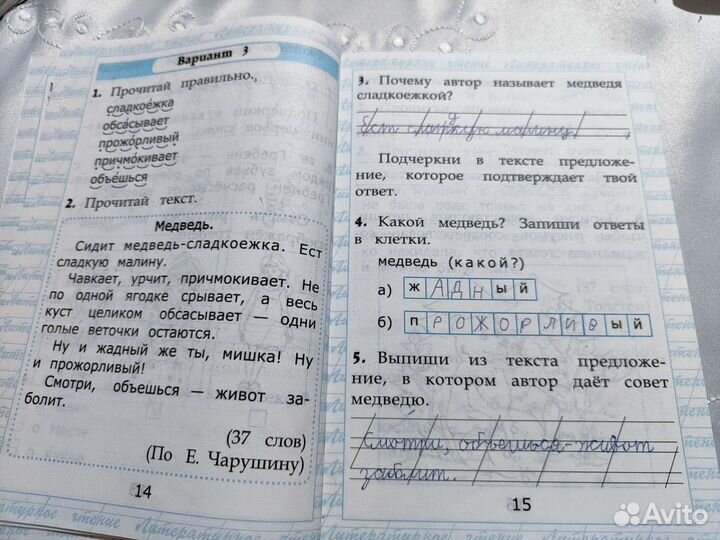 Вариант 3
1. Прочитай правильно.
сладкоежка
обсасывает
прожорливый
причмокивает
объешься
2. Прочитай текст.
Медведь.
Сидит медведь-сладкоежка. Ест
сладкую малину.
Чавкает, урчит, причмокивает. Не
по одной ягодке срывает, а весь
куст целиком обсасывает — одни
голые веточки остаются.
Ну и жадный же ты, мишка! Ну
и прожорливый!
Смотри, объешься — живот за-
болит.
(37 слов)
(По Е. Чарушину)
14
3. Почему автор называет медведя
сладкоежкой?
Ест сладкую малину.
Подчеркни в тексте предложе-
ние, которое подтверждает твой
ответ.
4. Какой медведь? Запиши ответы
в клетки.
медведь (какой?)
а) жадный
б) прожорливый
5. Выпиши из текста предложе-
ние, в котором автор даёт совет
медведю.
Смотри, объешься - живот
заблит.
15
Литературное чтение Литературное
Avito